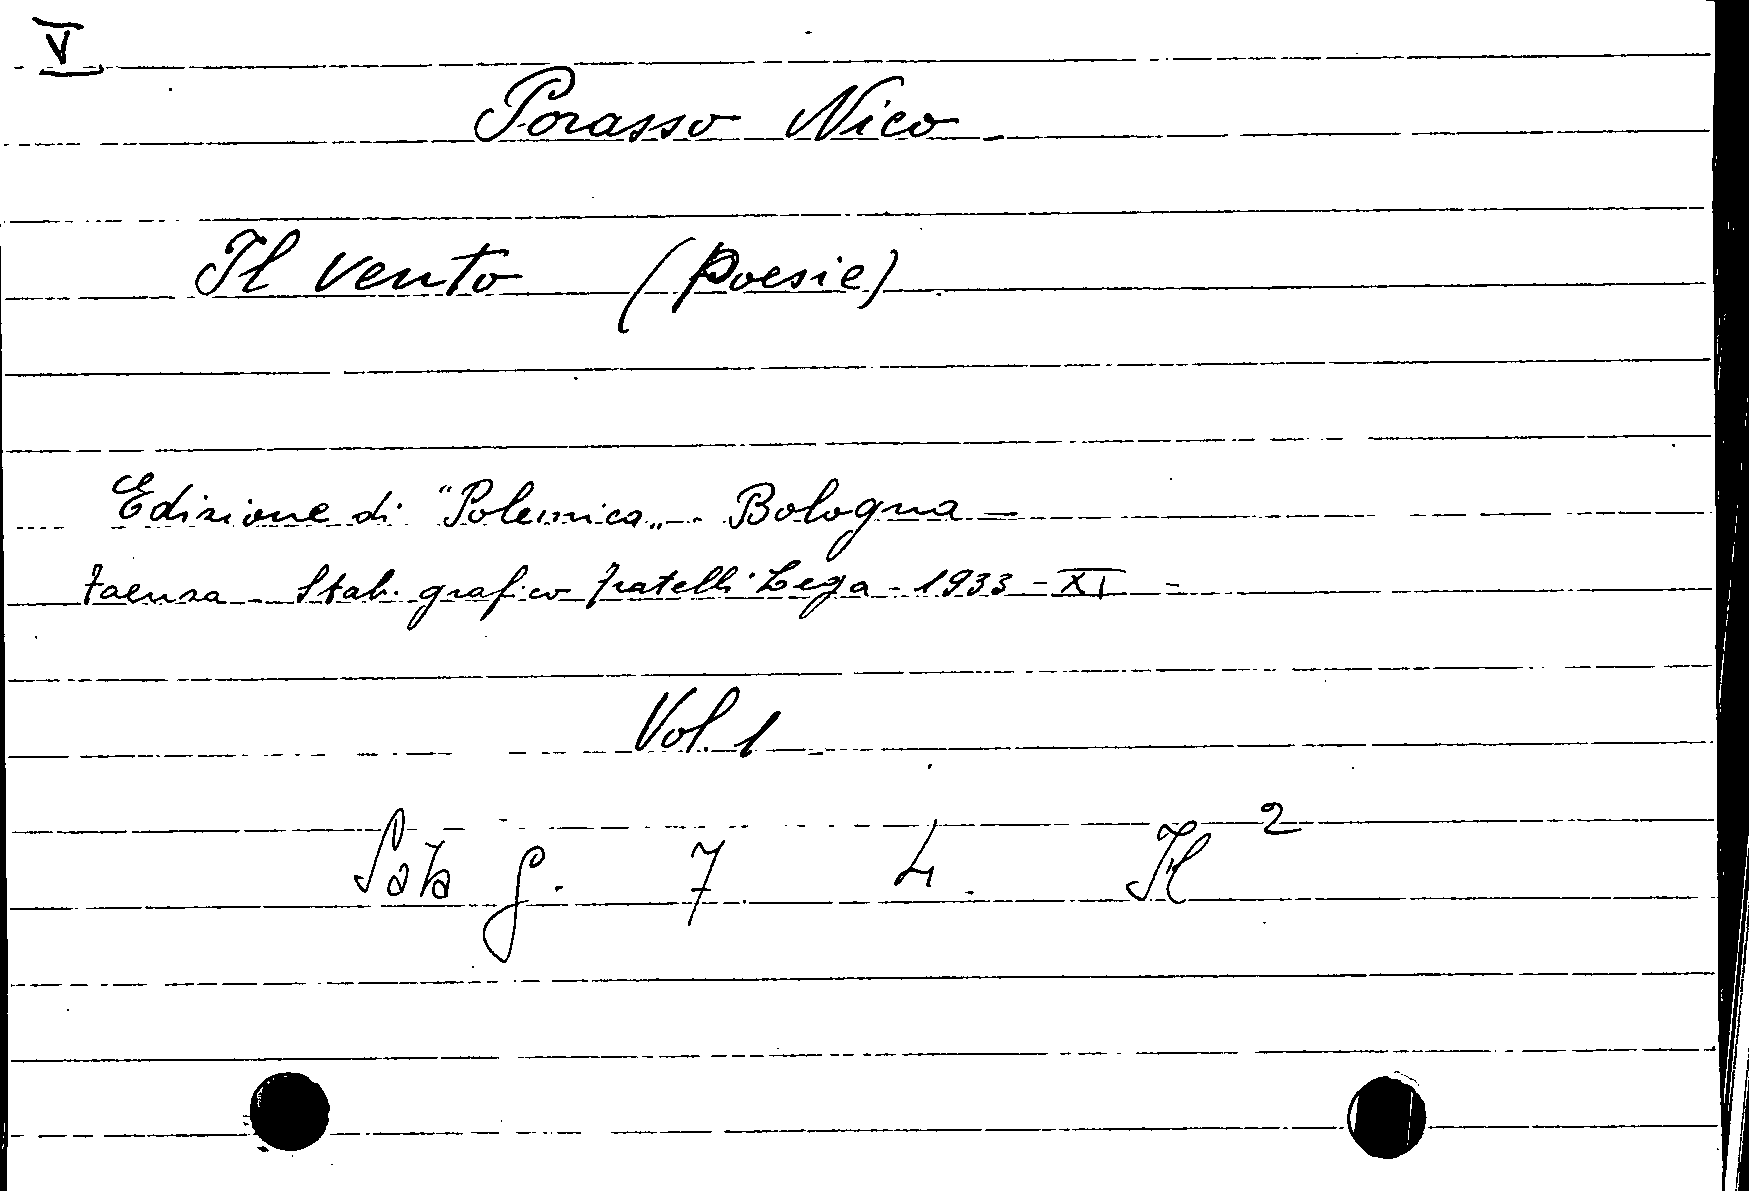 V
Porasso Nico
Il vento (Poesie)
Edizione di "Polemica„ - Bologna -
Faenza - Stab. grafico fratelli Lega - 1933 - XI -
Vol. 1
Sala g. 7 4. H²